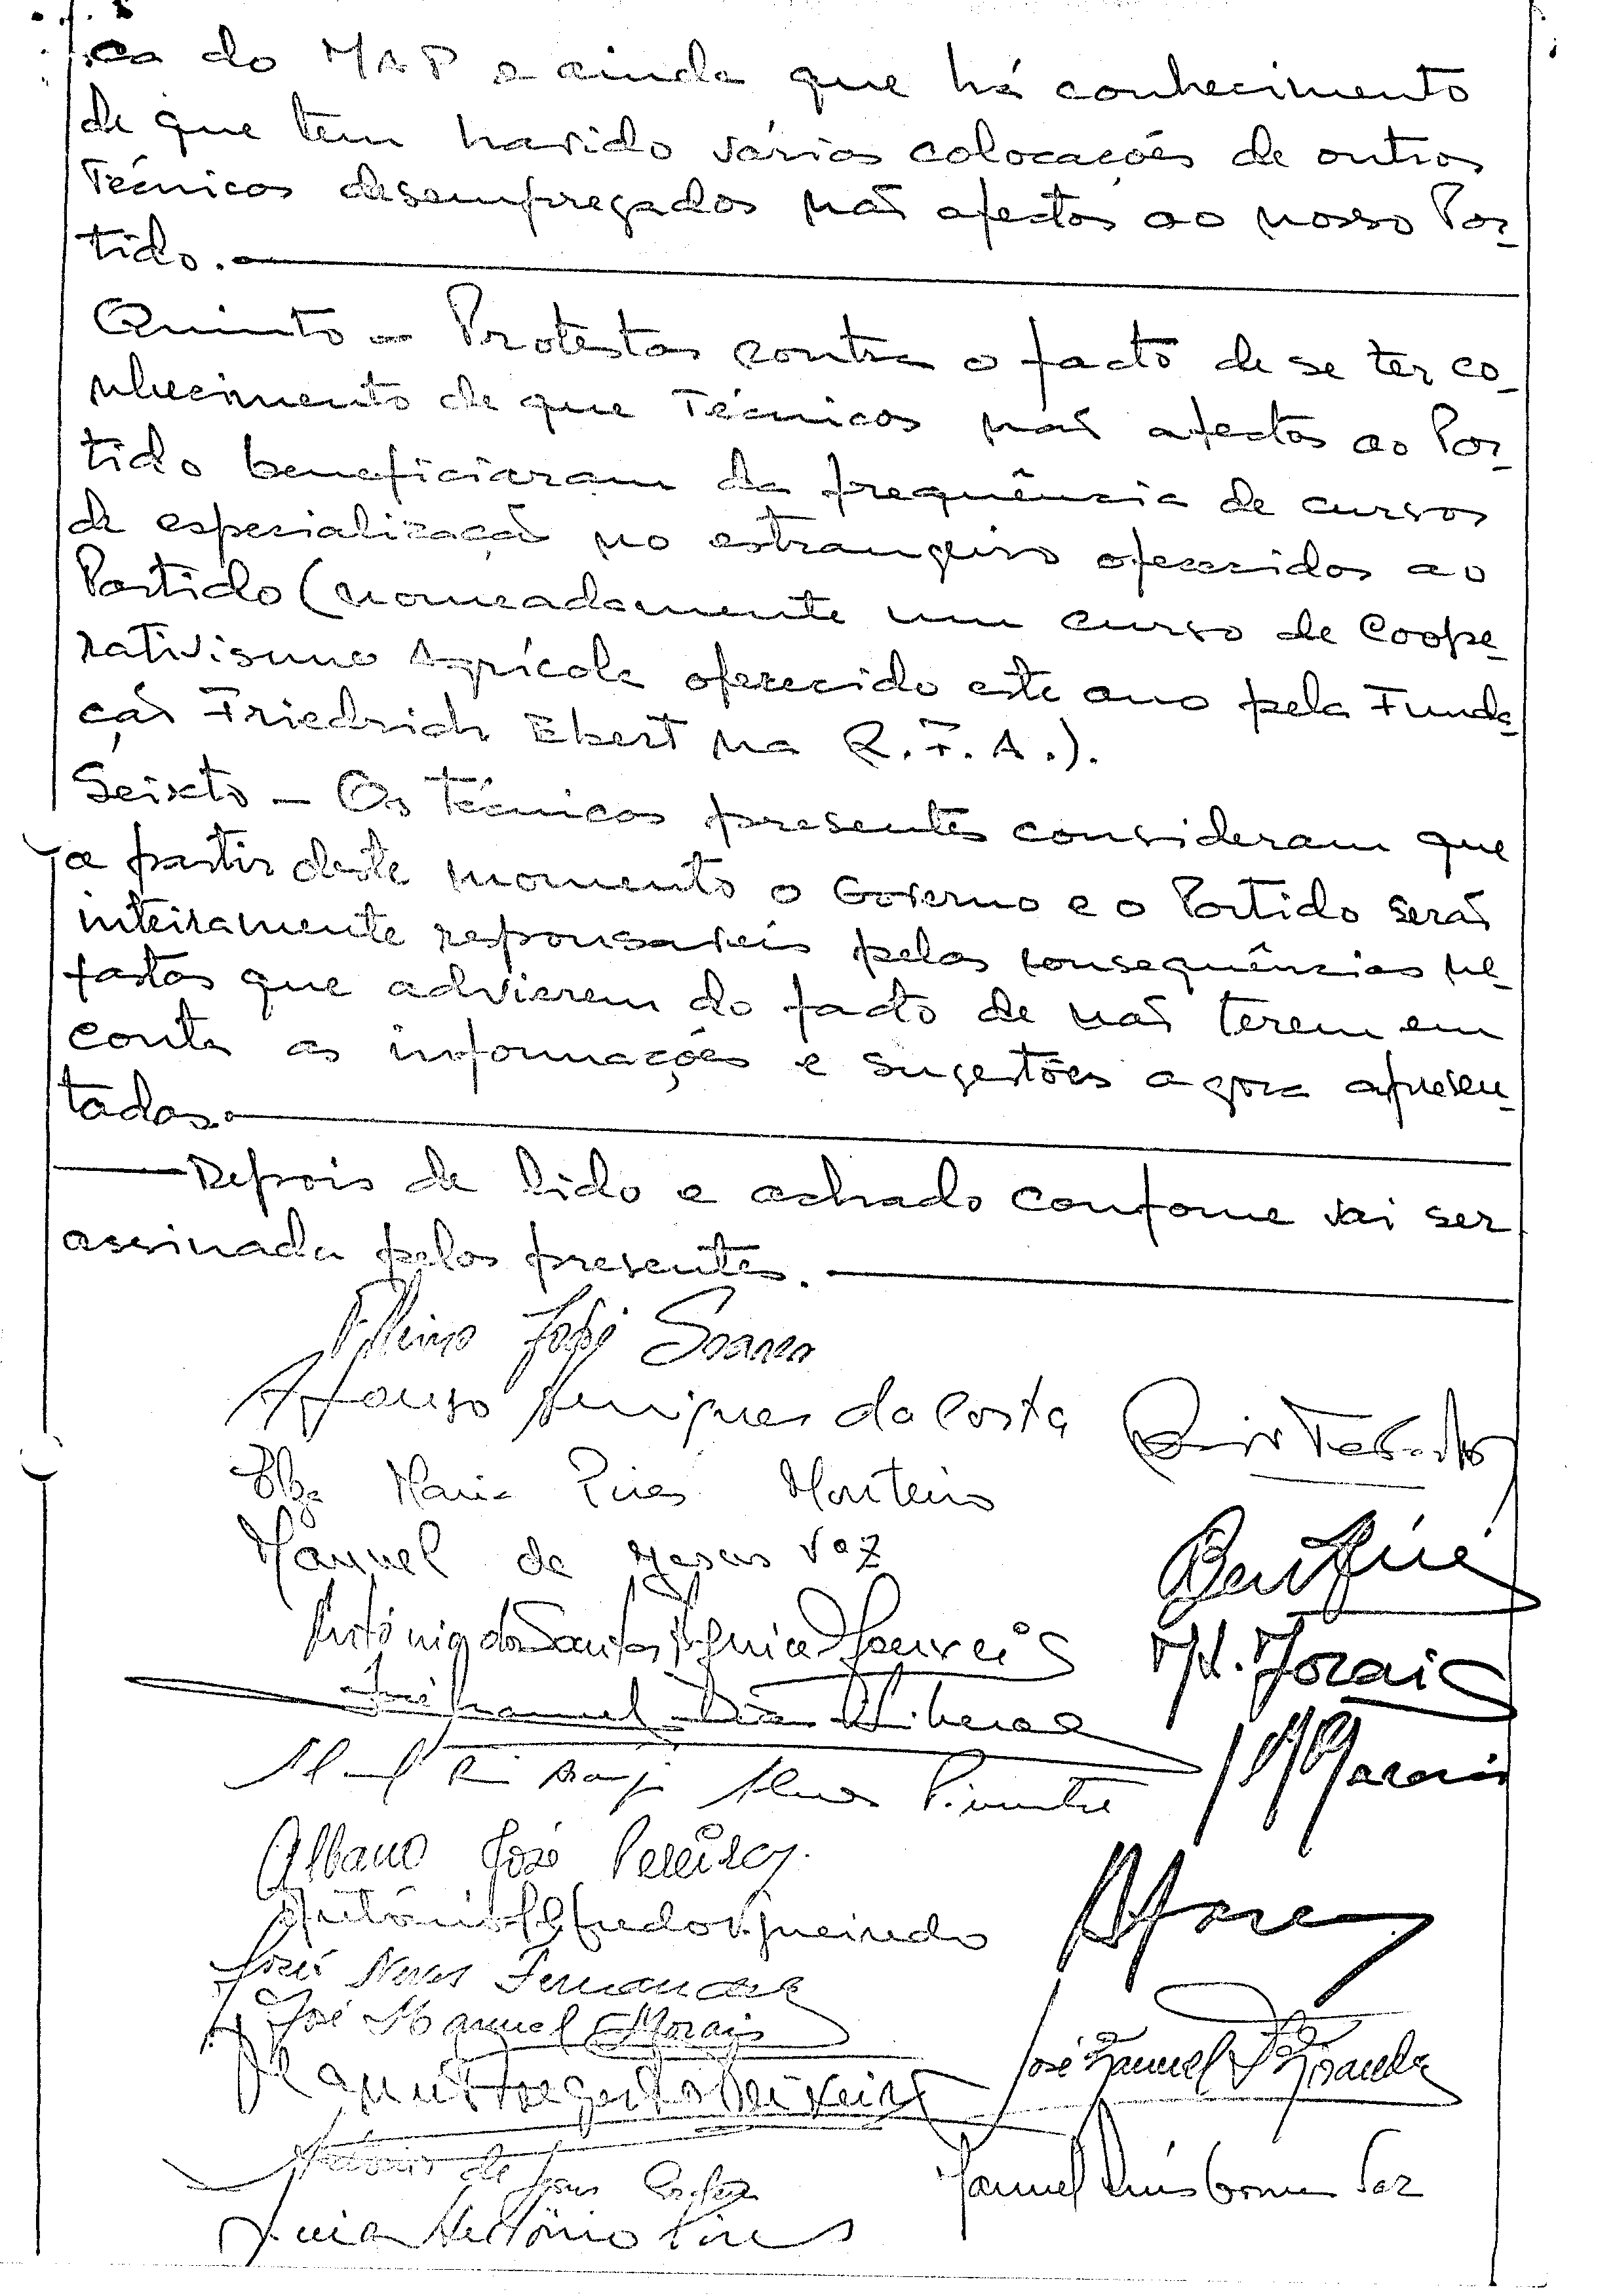 ca do MAP e ainda que há conhecimento
de que tem havido várias colocações de outros
Técnicos desempregados não afectos ao nosso Par-
tido.
Quinto - Protestar contra o facto de se ter co-
nhecimento de que Técnicos não afectos ao Par-
tido beneficiaram da frequência de cursos
de especialização no estrangeiro oferecidos ao
Partido (nomeadamente um curso de Coope-
rativismo Agrícola oferecido este ano pela Funda-
ção Friedrich Ebert na R.F.A.).
Seixto - Os técnicos presentes consideram que
a partir deste momento o Governo e o Partido serão
inteiramente responsaveis pelas consequências ne-
fastas que advierem do facto de não terem em
conta as informações e sugestões agora apresen-
tadas.
Depois de lido e achado conforme vai ser
assinada pelos presentes.
José Soares
Afonso Henriques da Costa
Maria Pires Monteiro
Manuel de Jesus Vaz
António dos Santos
M. Morais
José Manuel
Alves Pimentel
Albano José Pereira
António Alfredo Figueiredo
José Neves Fernandes
José Manuel Morais
Teixeira
José Manuel Miranda
António de Jesus
Manuel Luís Gomes Vaz
António Pires